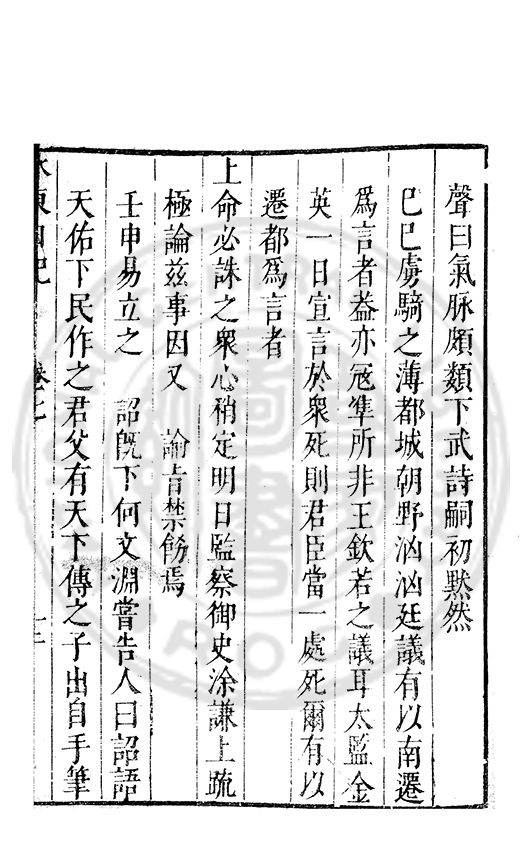 聲曰氣脉頗類下武詩嗣初黙然
巳巳虜騎之薄都城朝野洶洶廷議有以南遷
爲言者葢亦冦凖所非王欽若之議耳太監金
英一日宣言於衆死則君臣當一處死爾有以
遷都爲言者
上命必誅之衆心稍定明日監察御史涂謙上疏
極論兹事因又　諭旨禁飭焉
壬申易立之　詔旣下何文淵嘗告人曰詔語
天佑下民作之君父有天下傳之子出自手筆
水東日記　卷七